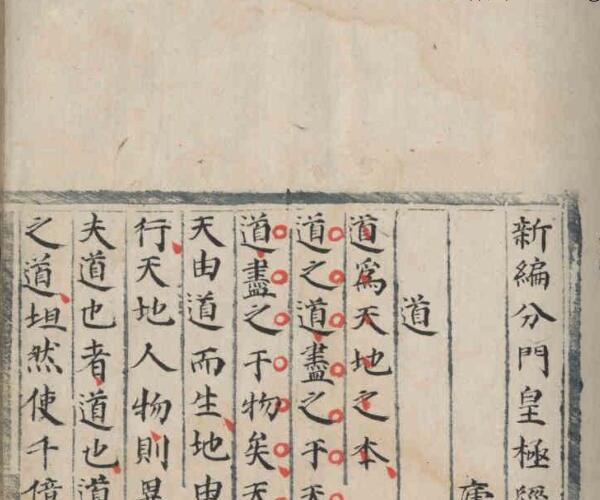 新編分門皇極經
道
道爲天地之本
道之道盡之于天
道盡之于物矣天
天由道而生地由
行天地人物則異
夫道也者道也道
之道坦然使千億